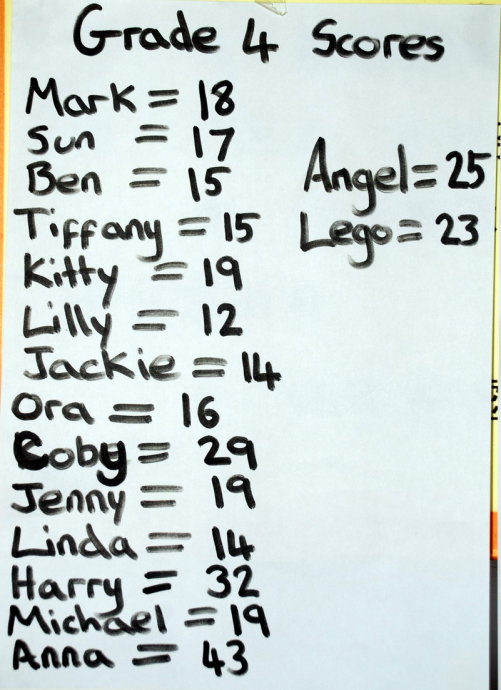 Grade 4 Scores
Mark = 18
Sun = 17
Ben = 15
Tiffany = 15
Kitty = 19
Lilly = 12
Jackie = 14
Ora = 16
Coby = 29
Jenny = 19
Linda = 14
Harry = 32
Michael = 19
Anna = 43
Angel = 25
Lego = 23